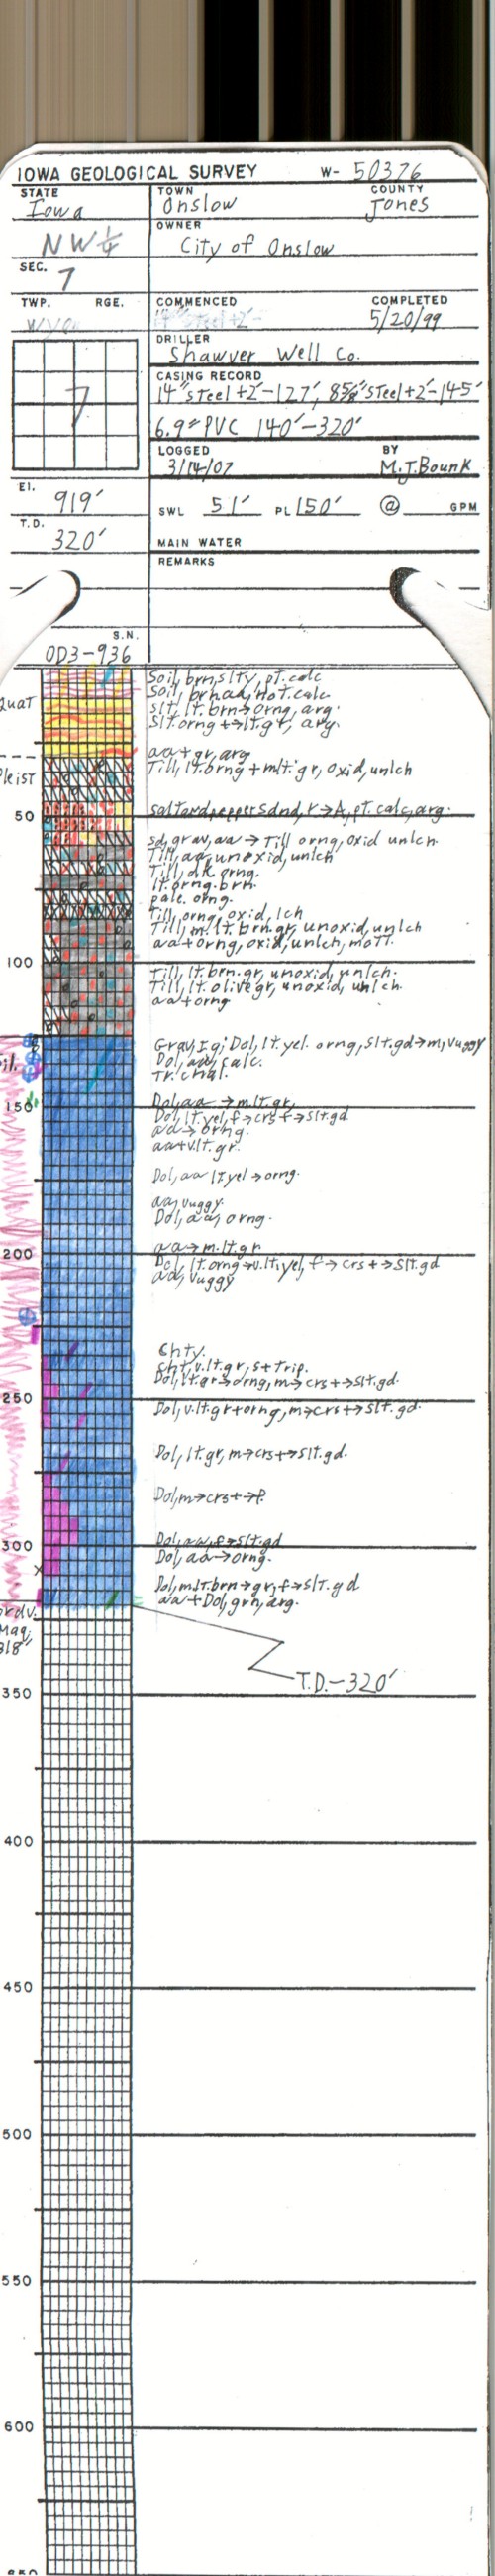 IOWA GEOLOGICAL SURVEY W- 50376
STATE TOWN COUNTY
Iowa Onslow Jones
OWNER
NW¼ City of Onslow
SEC.
7
TWP. RGE. COMMENCED COMPLETED
5/20/99
DRILLER
Shawver Well Co.
7
CASING RECORD
14" steel +2'-127', 8⅝" steel +2'-145'
6.9" PVC 140'-320'
LOGGED BY
3/14/07 M.J. Bounk
El.
919' SWL 51' PL 150' @ GPM
T.D.
320' MAIN WATER
REMARKS
S.N.
OD3-936
Soil, brn, slty, pt. calc
Soil, brn, aa, not. calc
Quat
slt, lt. brn→orng, arg.
Slt. orng +→lt. gr, arg.
aa + gr, arg
Pleist Till, lt. orng + m lt. gr, oxid, unlch
50 salt and pepper sdnd, r→A, pt. calc, arg.
sd, grav, aa → Till orng, oxid unlch.
Till, aa, unoxid, unlch
Till, dk orng.
lt. orng. brn.
pale. orng.
Till, orng, oxid, lch
Till, m. lt. brn. gr, unoxid, unlch
aa + orng, oxid, unlch, mott.
100
Till, lt. brn. gr, unoxid, unlch.
Till, lt. olive gr, unoxid, unlch.
aa + orng
Grav, Ig; Dol, lt. yel. orng, slt. gd→m, vuggy
il. Dol, aa, calc.
Tr. chal.
150 Dol, aa → m. lt. gr,
Dol, lt. yel, f→crs +→slt. gd
aa → orng.
aa + v. lt. gr.
Dol, aa lt. yel → orng.
aa, vuggy.
Dol, aa, orng.
200 aa → m. lt. gr
Dol, lt. orng→v. lt. yel, f→ crs +→slt. gd
aa, vuggy
Chty.
cht, v. lt. gr, s + Trip.
Dol, lt. gr→orng, m→crs +→slt. gd.
250
Dol, v. lt. gr + orng, m→crs +→slt. gd.
Dol, lt. gr, m→crs +→slt. gd.
Dol, m→crs +→f.
300 Dol, aa, f→slt. gd
Dol, aa→orng.
x
Dol, m lt. brn→gr, f→slt. gd
aa + Dol, grn, arg.
ordv.
Maq.
318"
T.D.-320'
350
400
450
500
550
600
650